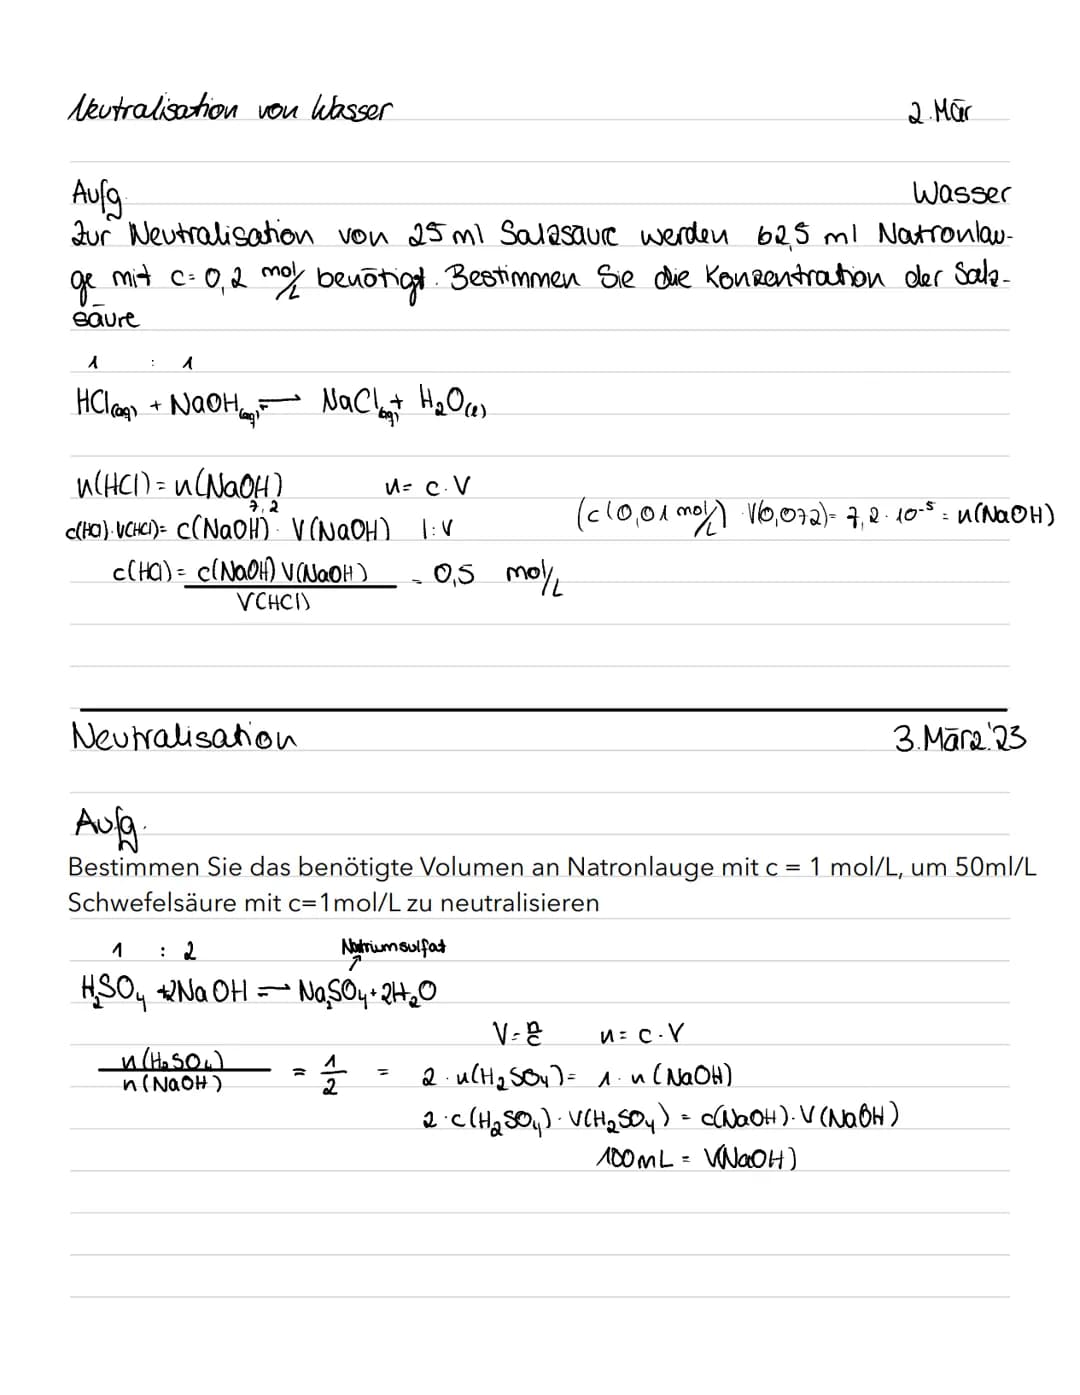 Neutralisation von Wasser 2. Mär
Aufg. Wasser
Zur Neutralisation von 25 ml Salzsäure werden 62,5 ml Natronlau-
ge mit c=0,2 mol/L benötigt. Bestimmen Sie die Konzentration der Salz-
säure
1 : 1
HCl(aq) + NaOH(aq) ⇌ NaCl(aq) + H₂O(l)
n(HCl) = n(NaOH) n = c · V
7,2
c(HCl)·V(HCl) = c(NaOH) · V(NaOH) | : V (c(0,01 mol/L) · V(0,072) = 7,2 · 10⁻⁵ = n(NaOH)
c(HCl) = c(NaOH) V(NaOH) / V(HCl) = 0,5 mol/L
Neutralisation 3. März '23
Aufg.
Bestimmen Sie das benötigte Volumen an Natronlauge mit c = 1 mol/L, um 50ml/L
Schwefelsäure mit c=1mol/L zu neutralisieren
1 : 2 Natriumsulfat
H₂SO₄ + 2NaOH ⇌ Na₂SO₄ + 2H₂O
V = n/c n = c · V
n(H₂SO₄) / n(NaOH) = 1/2 = 2 · n(H₂SO₄) = 1 · n(NaOH)
2 · c(H₂SO₄) · V(H₂SO₄) = c(NaOH) · V(NaOH)
100mL = V(NaOH)